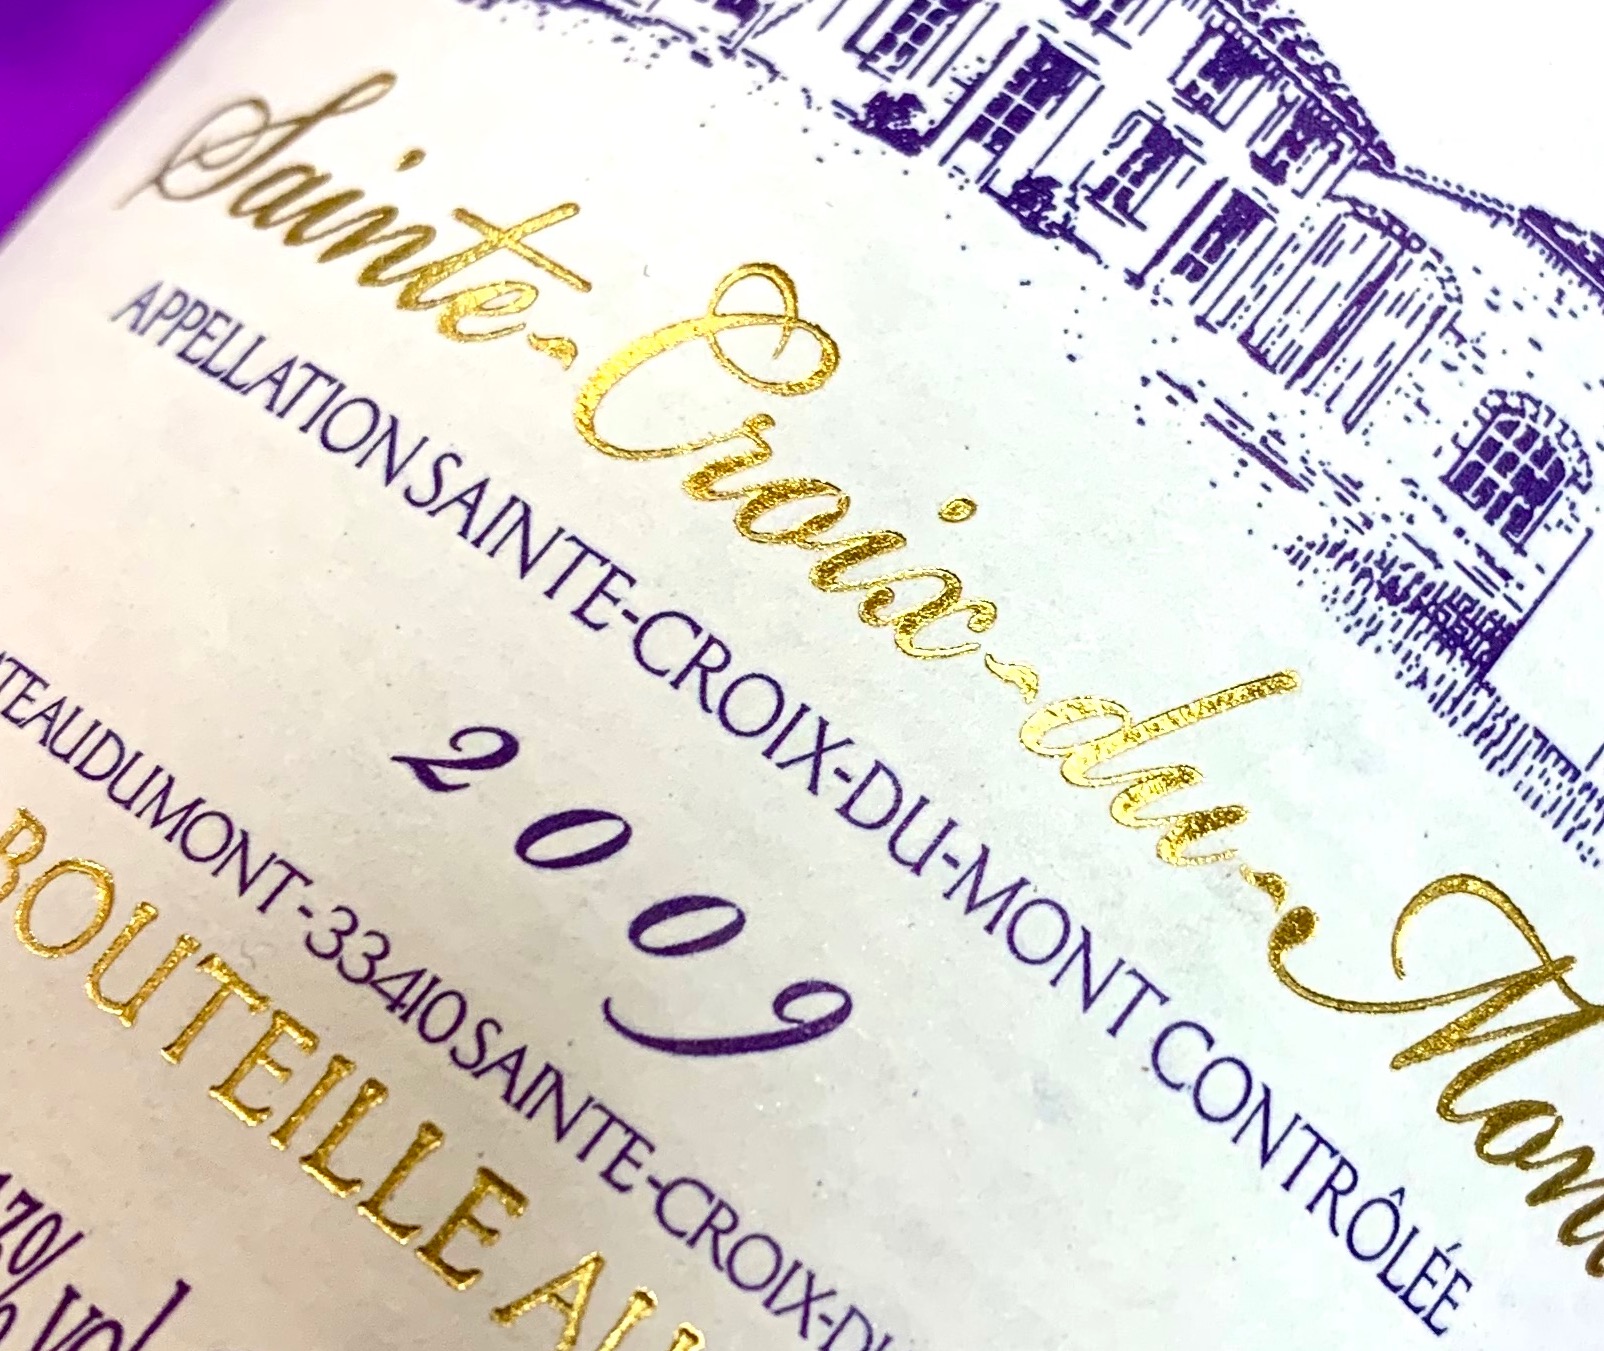 Sainte-Croix-du-Mon
APPELLATION SAINTE-CROIX-DU-MONT CONTRÔLÉE
2009
TEAU DU MONT - 33410 SAINTE-CROIX-DU
BOUTEILLE AU
17% vol